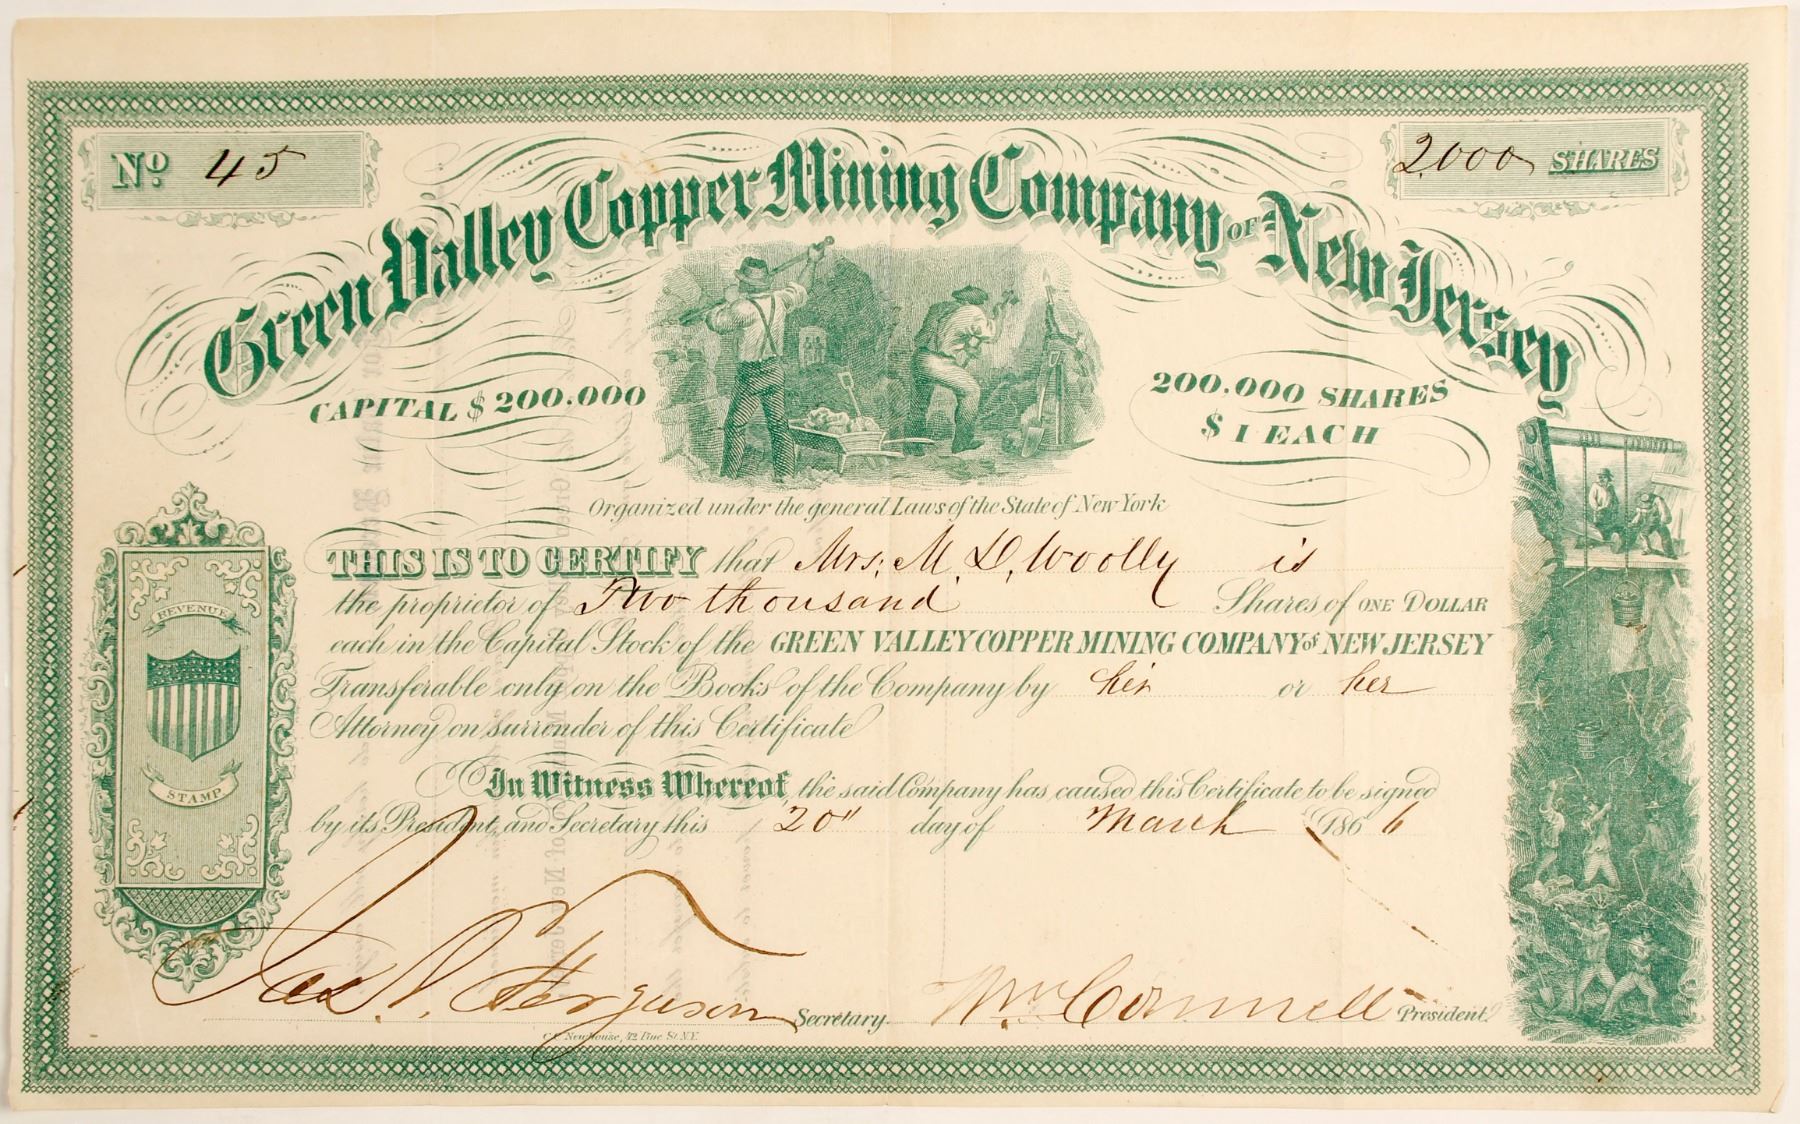 No. 45
2000 SHARES
Green Valley Copper Mining Company OF New Jersey
CAPITAL $200.000
200.000 SHARES
$1 EACH
Organized under the general Laws of the State of New York
THIS IS TO CERTIFY that Mrs. M. D. Woolly is
the proprietor of Two thousand Shares of ONE DOLLAR
each in the Capital Stock of the GREEN VALLEY COPPER MINING COMPANY of NEW JERSEY
Transferable only on the Books of the Company by her or her
Attorney on surrender of this Certificate
REVENUE
STAMP
In Witness Whereof, the said Company has caused this Certificate to be signed
by its President, and Secretary this 20" day of March 1866
Jas. N. Ferguson Secretary.
Wm Connell President.
Newhouse, 42 Pine St. N.Y.